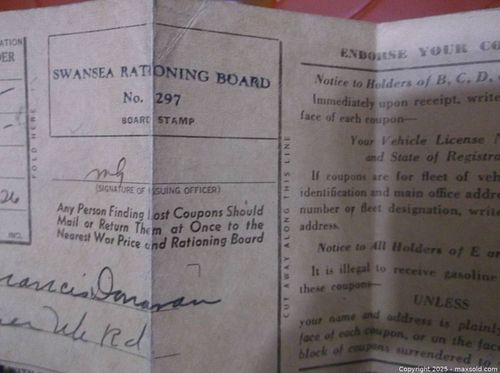 ATION
DER
26
INC.
FOLD HERE
SWANSEA RATIONING BOARD
No. 297
BOARD STAMP
mg
(SIGNATURE OF ISSUING OFFICER)
Any Person Finding Lost Coupons Should
Mail or Return Them at Once to the
Nearest War Price and Rationing Board
Francis Donovan
Rd
CUT AWAY ALONG THIS LINE
ENDORSE YOUR CO
Notice to Holders of B, C, D,
Immediately upon receipt, write
face of each coupon—
Your Vehicle License
and State of Registra
If coupons are for fleet of veh
identification and main office addre
number or fleet designation, writ
address.
Notice to All Holders of E an
It is illegal to receive gasoline
these coupons—
UNLESS
your name and address is plainl
face of each coupon, or on the fac
block of coupons surrendered to
Copyright 2025 - maxsold.com